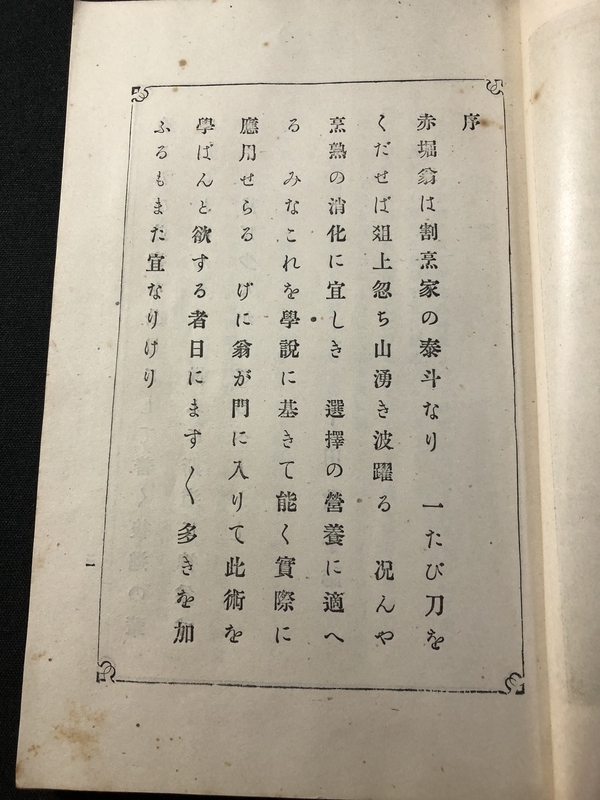 序
赤堀翁は割烹家の泰斗なり　一たび刀を
くだせば爼上忽ち山湧き波躍る　况んや
烹熟の消化に宜しき　選擇の營養に適へ
る　みなこれを學說に基きて能く實際に
應用せらる　げに翁が門に入りて此術を
學ばんと欲する者日にます〱多きを加
ふるもまた宜なりけり
一